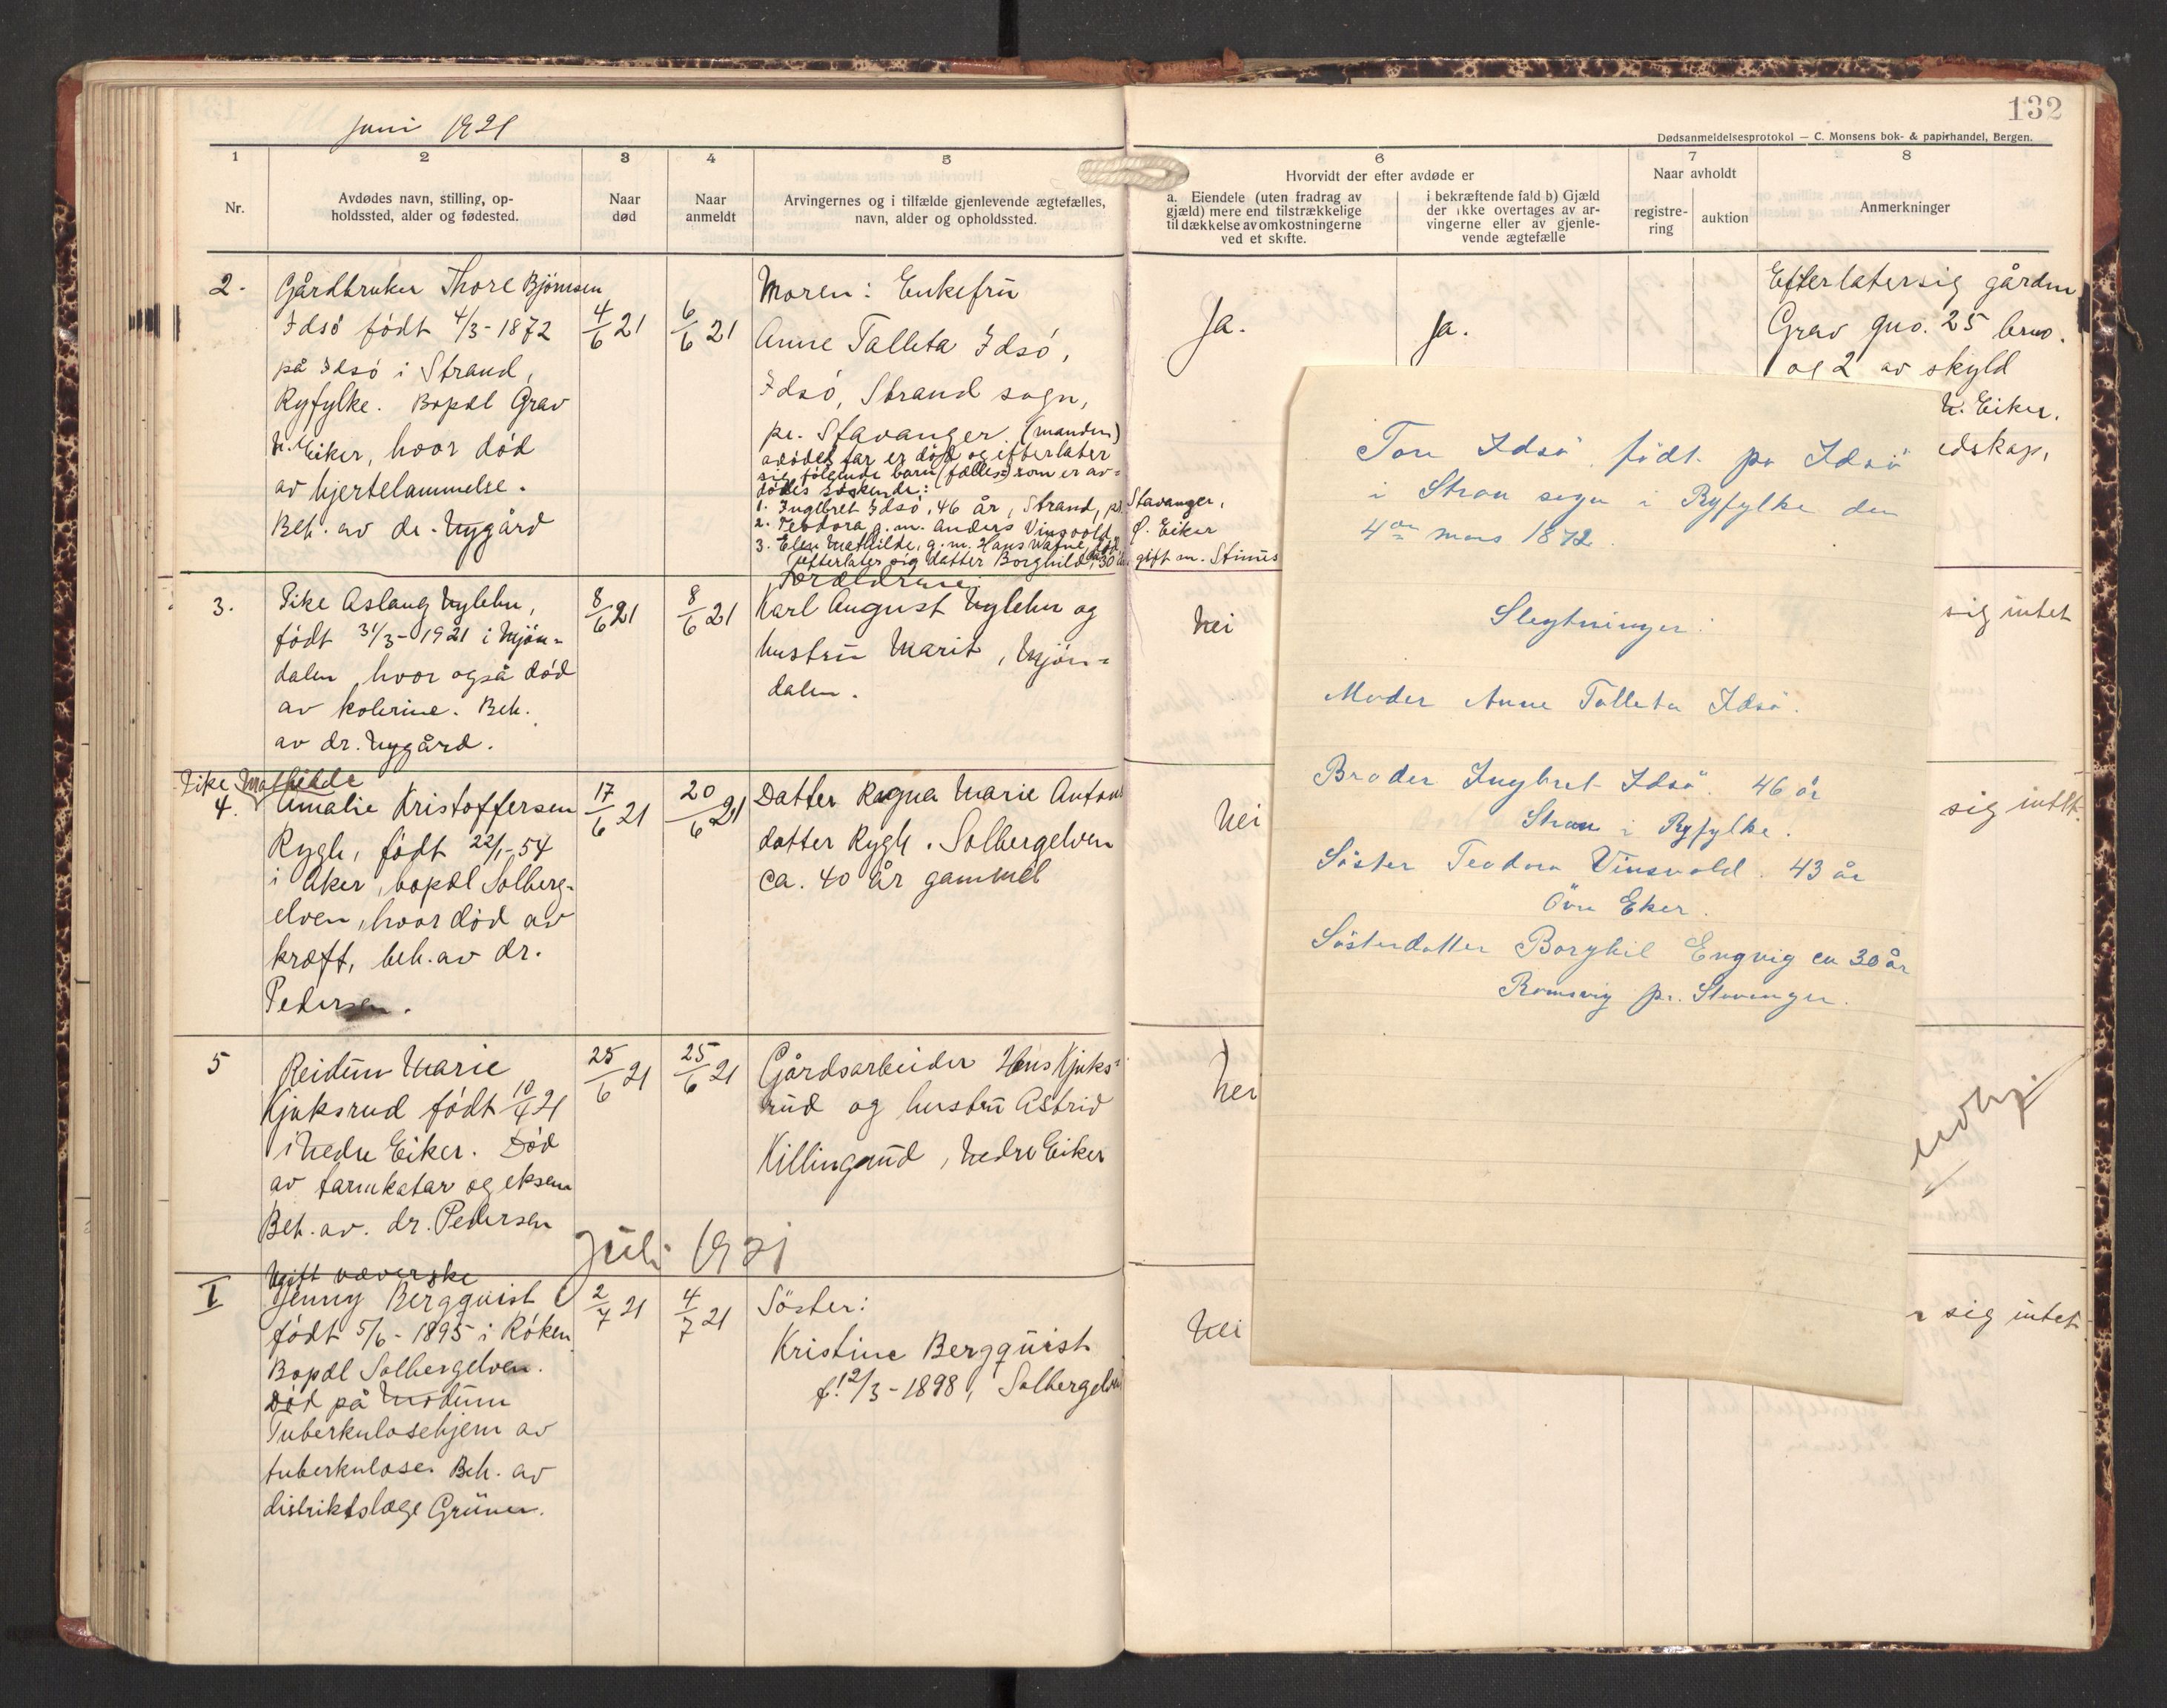 132
juni 1921
Dødsanmeldelsesprotokol — C. Monsens bok- & papirhandel, Bergen.
1
2
3
4
5
6
7
8
Nr.
Avdødes navn, stilling, op-
holdssted, alder og fødested.
Naar
død
Naar
anmeldt
Arvingernes og i tilfælde gjenlevende ægtefælles,
navn, alder og opholdssted.
Hvorvidt der efter avdøde er
a. Eiendele (uten fradrag av
gjæld) mere end tilstrækkelige
til dækkelse av omkostningerne
ved et skifte.
i bekræftende fald b) Gjæld
der ikke overtages av ar-
vingerne eller av gjenle-
vende ægtefælle
Naar avholdt
registre-
ring
auktion
Anmerkninger
2.
Gårdbruker Thore Bjørnsen
Idsö født 4/3-1872
på Idsö i Strand,
Ryfylke. Bopæl Grav
N. Eiker, hvor död
av hjertelammelse.
Beh. av dr. Nygård
4/6 21
6/6 21
Moren: Enkefru
Anne Talleta Idsö,
Idsö, Strand sogn,
pr. Stavanger (manden)
avdødes far er død og efterlater
sig følgende barn (fælles) som er av-
dødes søskende:
1. Ingebret Idsö, 46 år, Strand, pr. Stavanger,
2. Teodora g.m. Anders Vinsvold, Ø. Eiker
3. Elen Mathilde, g.m. Hans Watne, död
efterlater sig datter Borghild, 30 år, gift m. Stinus
Ja.
Ja.
Efterlater sig gården
Grav gno. 25 brno.
og 2 av skyld
N. Eiker.
edskap,
3.
Pike Aslaug Nylehn,
født 31/3-1921 i Mjön-
dalen, hvor også död
av kolerine. Beh.
av dr. Nygård.
8/6 21
8/6 21
Forældrene
Karl August Nylehn og
hustru Marit, Mjön-
dalen.
Nei
sig intet
Pike Mathilde
4.
Amalie Kristoffersen
Rygh, født 22/1-54
i Aker, bopæl Solberg-
elven, hvor död av
kræft, beh. av dr.
Pedersen.
17/6 21
20/6 21
Datter Ragna Marie Antons
datter Rygh. Solbergelven
ca. 40 år gammel
Nei
sig intet.
5
Reidun Marie
Kjuksrud født 10/4 21
i Nedre Eiker. Död
av tarmkatar og eksem
Beh. av. dr. Pedersen
25/6 21
25/6 21
Gårdsarbeider Hans Kjuks-
rud og hustru Astrid
Killingrud, Nedre Eiker
Nei
Juli 1921
I
Ugift væverske
Jenny Bergquist
født 5/6-1895 i Röken
Bopæl Solbergelven.
Död på Modum
Tuberkulosehjem av
tuberkulose. Beh. av
distriktslæge Grüner.
2/7 21
4/7 21
Söster:
Kristine Bergquist
f. 12/3-1898, Solbergelven
Nei
r sig intet
Tore Idsö födt på Idsö
i Stran sogn i Ryfylke den
4de mars 1872.
Slegtninger:
Moder Anne Talleta Idsö.
Broder Ingbret Idsö. 46 år
Stran i Ryfylke.
Söster Teodora Vinsvold. 43 år
Övre Eker.
Sösterdatter Borghil Engvig ca 30 år
Romsvig pr. Stavanger.